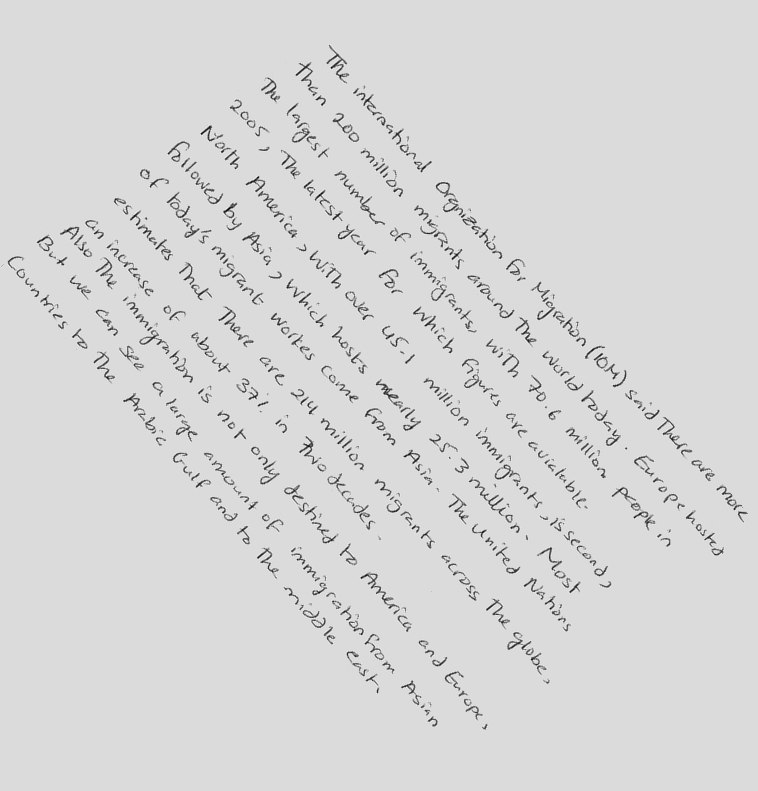 The international Orgnization for Migration (IOM) said There are more
than 200 million migrants around The world today. Europe hosted
The largest number of immigrants, with 70.6 million people in
2005, The latest year for which figures are avialable.
North America, with over 45.1 million immigrants, is second,
followed by Asia, which hosts nearly 25.3 million. Most
of today's migrant workes come from Asia. The United Nations
estimates That There are 214 million migrants across The globe,
an increase of about 37% in Two decades.
Also The immigration is not only destined to America and Europe,
But we can see a large amount of immigration from Asian
Countries to The Arabic Gulf and to The middle east.